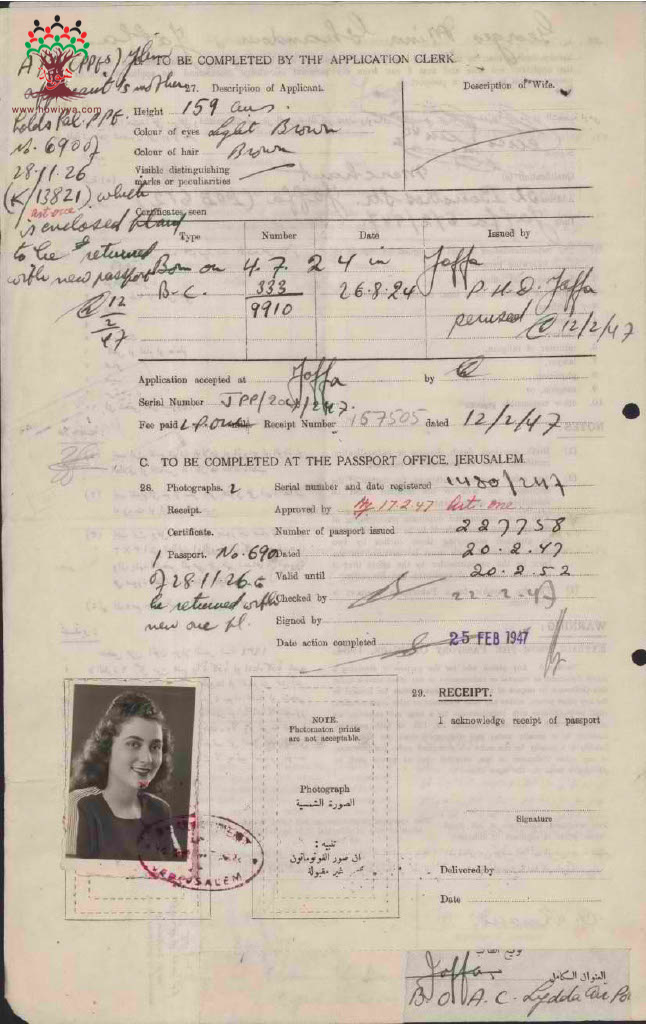 www.howiyya.com
TO BE COMPLETED BY THE APPLICATION CLERK.
applicant's mother
holds Pal. PPt.
No. 690 of
28.11.26
(K/13821) which
Art. one
is enclosed
to be returned
with new passport
12
2
47
27. Description of Applicant.
Description of Wife.
Height 159 cms.
Colour of eyes Light Brown
Colour of hair Brown
Visible distinguishing
marks or peculiarities
Certificates seen
Type Number Date Issued by
Born on 4.7.24 in Jaffa
B.C. 333 26.8.24 P.H.D. Jaffa
9910 perused 12/2/47
Application accepted at Jaffa by
Serial Number JPP/ /247.
Fee paid Receipt Number 167505 dated 12/2/47
C. TO BE COMPLETED AT THE PASSPORT OFFICE, JERUSALEM
28. Photographs. 2 Serial number and date registered 1480/247
Receipt. Approved by 17.2.47 Art. one
Certificate. Number of passport issued 227758
1 Passport. No. 690 Dated 20.2.47
of 28.11.26 Valid until 20.2.52
be returned with Checked by 22.2.47
new one pl. Signed by
Date action completed 25 FEB 1947
29. RECEIPT.
I acknowledge receipt of passport
NOTE.
Photomaton prints
are not acceptable.
Photograph
الصورة الشمسية
تنبيه :
ان صور الفوتوماتون
غير مقبولة
JERUSALEM
Signature
Delivered by
Date
توقيع الطالب
العنوان الكامل
Jaffa
B.O.A.C. Lydda Air Po